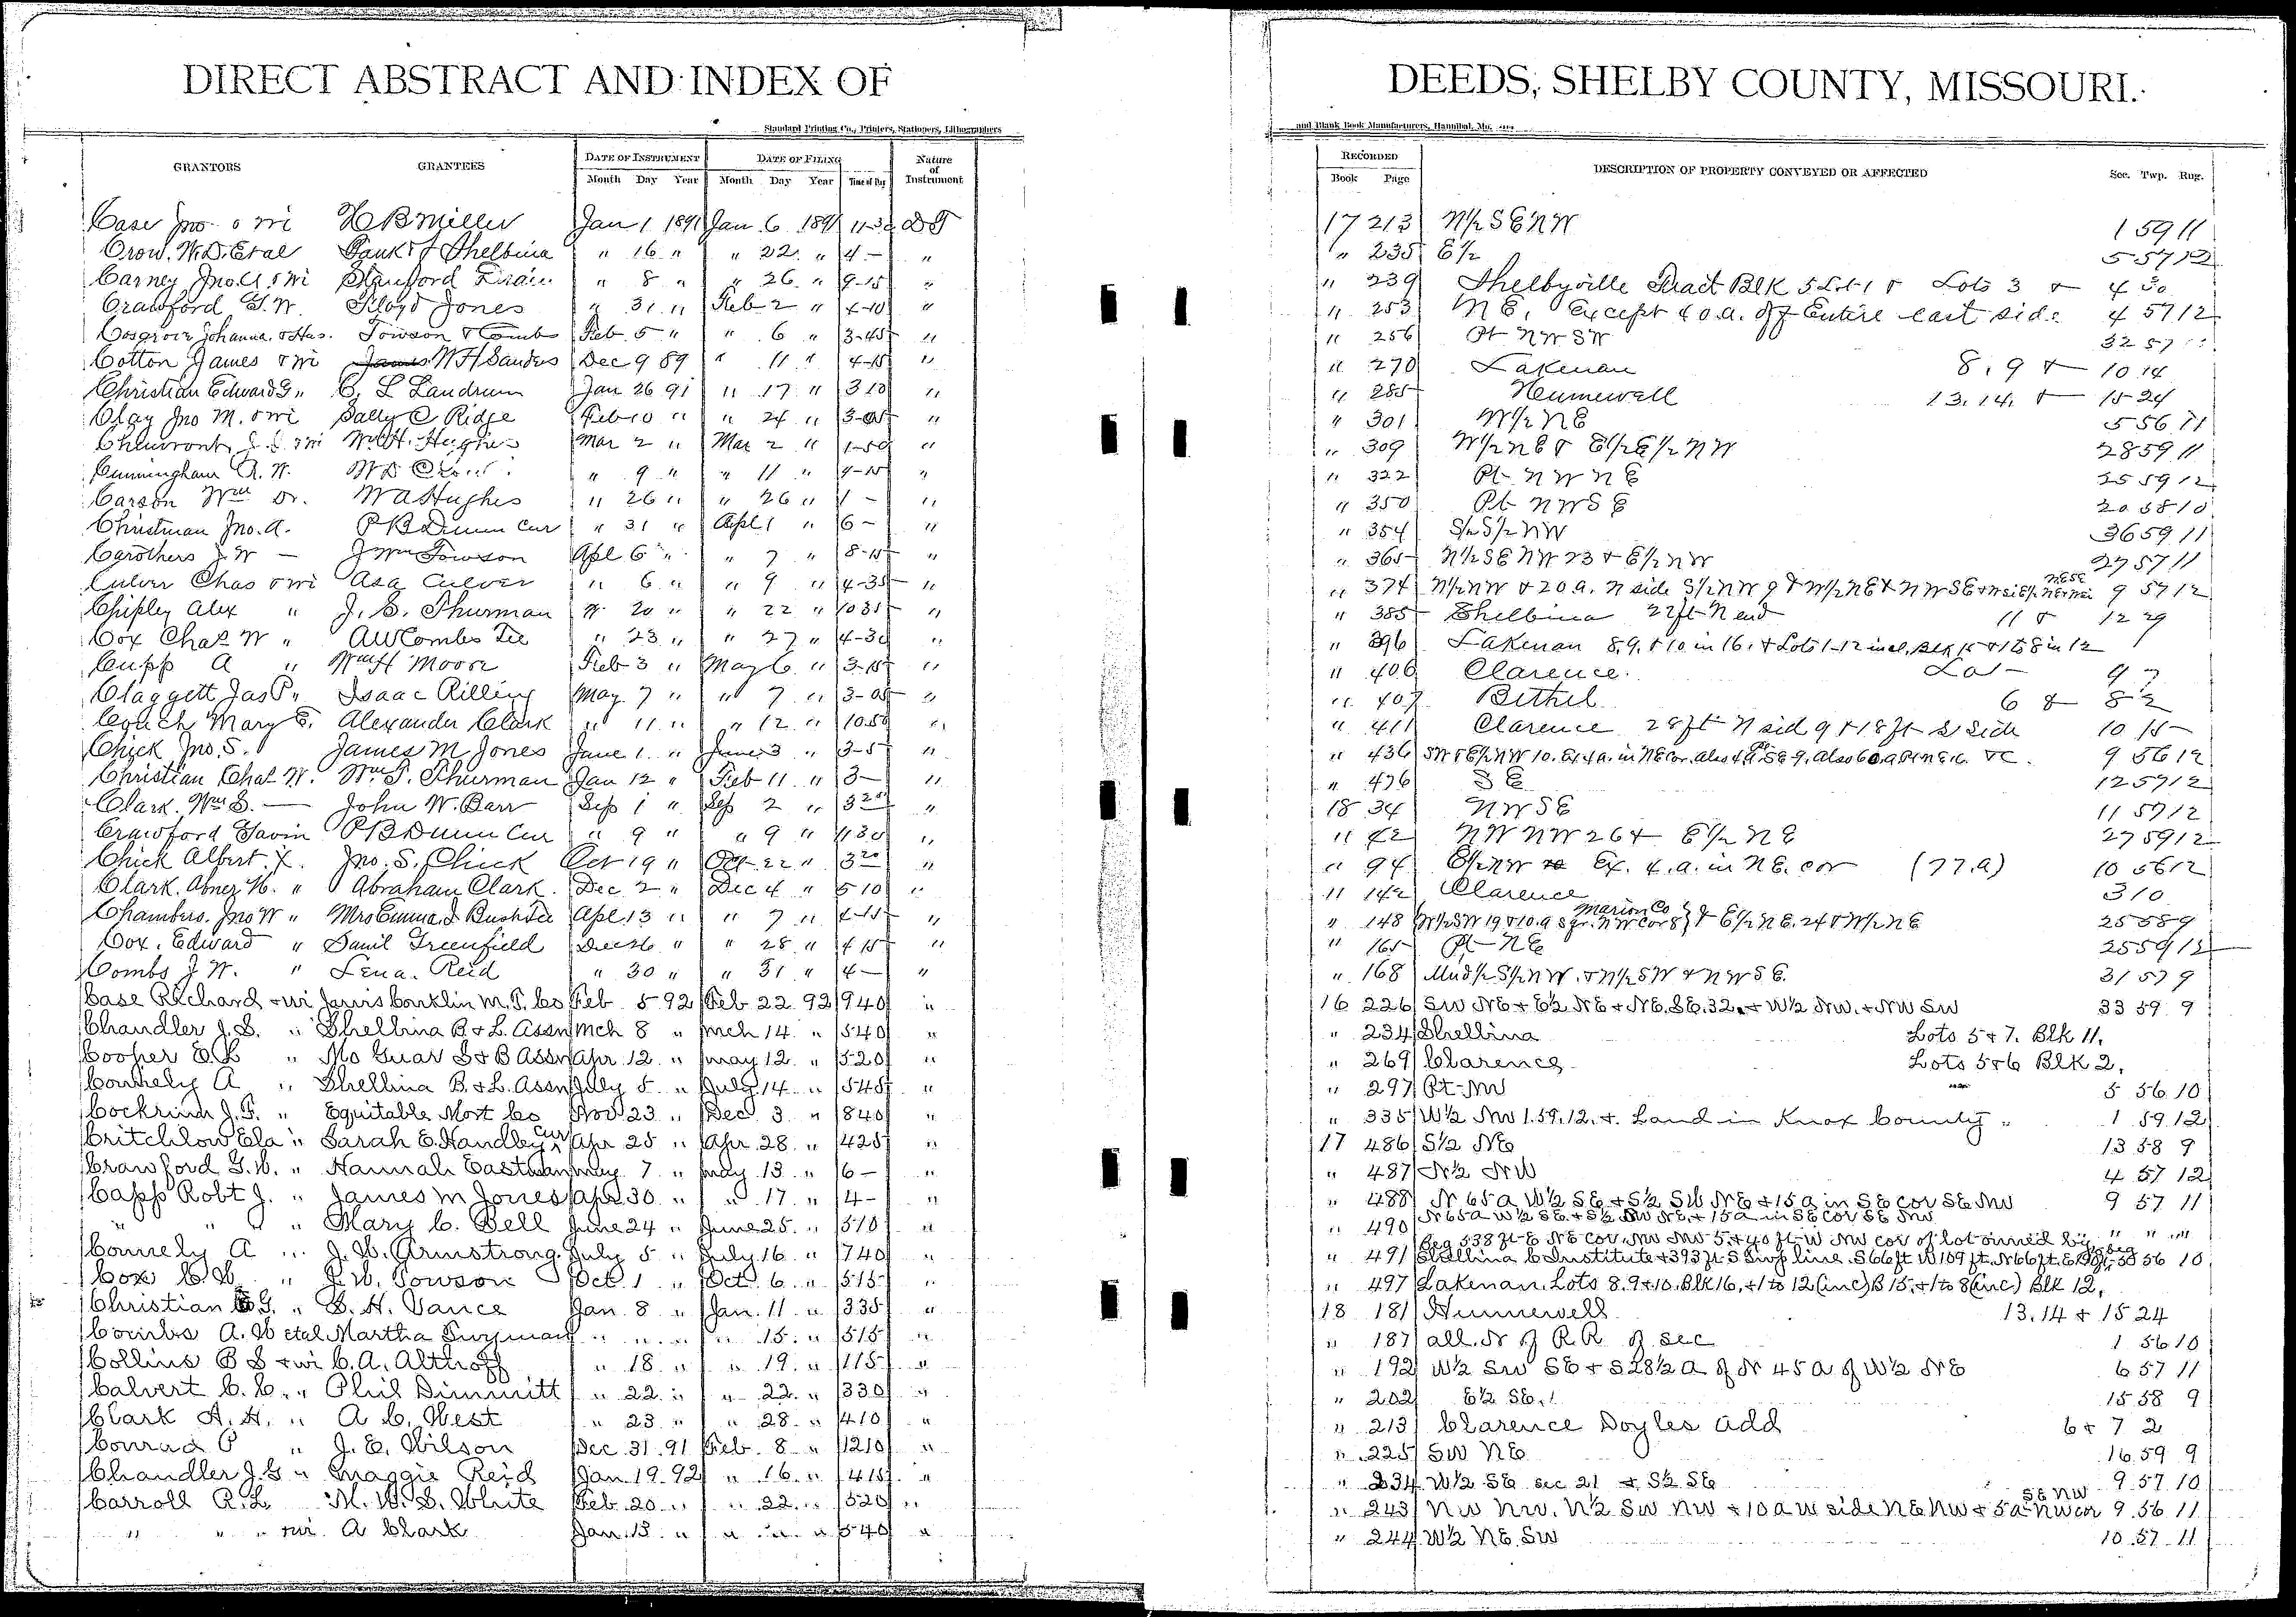 DIRECT ABSTRACT AND INDEX OF
DEEDS, SHELBY COUNTY, MISSOURI.
Standard Printing Co., Printers, Stationers, Lithographers
and Blank Book Manufacturers, Hannibal, Mo.
GRANTORS GRANTEES DATE OF INSTRUMENT DATE OF FILING Nature of Instrument
Month Day Year Month Day Year Time of Day
RECORDED DESCRIPTION OF PROPERTY CONVEYED OR AFFECTED Sec. Twp. Rng.
Book Page
Case Jno. & wi H B Miller Jan 1 1891 Jan 6 1891 11-30 DT 17 213 N½ SE NW 1 59 11
Crow, W.D. Etal Bank of Shelbina " 16 " " 22 " 4 - " " 235 E½ 5 57 12
Carney Jno. & wi Stanford " 8 " " 26 " 9-15 " " 239 Shelbyville Tract Blk 5 Lot 1 & Lots 3 & 4 30
Crawford G. W. Floyd Jones " 31 " Feb 2 " 4-10 " " 253 NE, Except 40.a. off Entire east side 4 57 12
Cosgrove Johanna & Hus. Towson & Combs Feb 5 " " 6 " 3-45 " " 256 Pt NW SW 32 57
Cotton James & wi W H Sanders Dec 9 89 " 11 " 4-15 " " 270 Lakenan 8, 9 & 10 14
Christian Edward G " C. L Landrum Jan 26 91 " 17 " 3 10 " " 285 Hunnewell 13. 14. & 15 24
Clay Jno M. & wi Sally C Ridge Feb 10 " " 24 " 3-05 " " 301 W½ NE 5 56 11
& wi Wm H. Hughes Mar 2 " Mar 2 " 1-50 " " 309 W½ NE & E½ E½ NW 28 59 11
Cunningham A. W. W D " 9 " " 11 " 9-15 " " 322 Pt NW NE 25 59 12
Carson Wm Dr. W A Hughes " 26 " " 26 " 1 - " " 350 Pt NW SE 20 58 10
Christman Jno. A. P B Dunn Cur " 31 " Apl 1 " 6 - " " 354 S½ S½ NW 36 59 11
Carothers J. W - J Wm Towson Apl 6 " " 7 " 8-15 " " 365 N½ SE NW 23 & E½ NW 27 57 11
Culver Chas & wi Asa Culver " 6 " " 9 " 4-35 " " 374 N½ NW & 20 a. N side S½ NW 9 & W½ NE & NW SE 9 57 12
Chipley Alex " J. C. Thurman " 20 " " 22 " 10 35 " " 385 Shelbina 22 ft N end 11 & 12 29
Cox Chas W " A W Combs Tee " 23 " " 27 " 4-30 " " 396 Lakenan 8, 9, & 10 in 16, & Lots 1-12 incl, Blk 15 & 1 to 8 in 12
Cupp A " Wm H Moore Feb 3 " May 6 " 3-15 " " 406 Clarence. Lot 9 7
Claggett Jas P " Isaac Rilling May 7 " " 7 " 3-05 " " 407 Bethel 6 & 8 2
Couch Mary E. Alexander Clark " 11 " " 12 " 10 50 " " 411 Clarence 28 ft N sid 9 & 18 ft S side 10 15
Chick Jno. S. James M Jones June 1 " June 3 " 3-5 " " 436 SW & E½ NW 10. Ex 4 a. in NE cor. 9 56 12
Christian Chas W. Wm T. Thurman Jan 12 " Feb 11 " 3 - " " 476 SE 12 57 12
Clark, Wm S. - John W. Barr Sep 1 " Sep 2 " 3 25 " 18 34 NW SE 11 57 12
Crawford Gavin P B Dunn Cur " 9 " " 9 " 11 30 " " 42 NW NW 26 & E½ NE 27 59 12
Chick Albert X. Jno. S. Chick Oct 19 " Oct 22 " 3 20 " 94 E½ NW Ex. 4. a. in NE. cor (77. a) 10 56 12
Clark, Abner H. " Abraham Clark Dec 2 " Dec 4 " 5 10 " " 142 Clarence 3 10
Chambers. Jno W " Mrs Emma J Bush Tee Apl 13 " " 7 " 4-15 " " 148 W½ SW 19 & 10. a Marion Co & E½ NE. 24 & W½ NE 25 58 9
Cox, Edward " Danil Greenfield Dec 26 " " 28 " 4 15 " " 165 Pt NE 25 59 12
Combs J. W. " Lena. Reid " 30 " " 31 " 4 - " " 168 S½ NW. & N½ SW & NW SE. 31 57 9
Case Richard & wi Jarvis Conklin M. T. Co Feb 5 92 Feb 22 92 940 " 16 226 SW NE & E½ NE & NE. SE. 32. & W½ NW. & NW SW 33 59 9
Chandler J. S. " Shelbina B & L. Assn Mch 8 " Mch 14 " 540 " " 234 Shelbina Lots 5 & 7. Blk 11.
Cooper E. L " Mo Guar S & B Assn Apr. 12 " May 12 " 520 " " 269 Clarence Lots 5 & 6 Blk 2.
Connely A " Shelbina B. & L. Assn July 5 " July 14 " 545 " " 297 Pt-NW 5 56 10
Cockrum J. T. " Equitable Mort Co Nov 23 " Dec. 3 " 840 " " 335 W½ NW 1.59.12. & Land in Knox County " 1 59 12
Critchlow Ela " Sarah E. Handley Cur Apr 25 " Apr. 28 " 425 " 17 486 S½ NE 13 58 9
Crawford G. W. " Hannah Eastman May 7 " May 13 " 6 - " " 487 N½ NW 4 57 12
Capp Robt J. " James M Jones Apr 30 " " 17 " 4 - " " 488 N 65 a W½ SE & S½ SW NE & 15 a in SE cor SE NW 9 57 11
" " " " Mary C. Bell June 24 " June 25 " 510 " " 490 N 65 a W½ SE & S½ SW NE & 15 a in SE cor SE NW " " "
Connely A " J. W. Armstrong. July 5 " July 16 " 740 " " 491 Beg 538 ft E NE cor NW NW 5 & 40 ft W NW cor of lot owned by
Shelbina C Institute & 393 ft S Twp line. S 66 ft W 109 ft. N 66 ft. 5 56 10
Cox C. W. " J. W. Towson Oct. 1 " Oct. 6 " 515 " " 497 Lakenan. Lots 8. 9 & 10. Blk 16, & 1 to 12 (inc) B 15, & 1 to 8 (inc) Blk 12.
Christian E G. " S. H. Vance Jan. 8 " Jan. 11 " 335 " 18 181 Hunnewell 13. 14 & 15 24
Combs A. W etal Martha " " " " 15. " 515 " " 187 all. N of R R of sec 1 56 10
Collins B S & wi C. A. Althoff " 18 " " 19 " 115 " " 192 W½ SW SE & S 28½ a of N 45 a of W½ NE 6 57 11
Calvert C. C. " Phil Dimmitt " 22 " " 22 " 330 " " 202 E½ SE. 15 58 9
Clark A. H. " A C. West " 23 " " 28 " 410 " " 213 Clarence Doyles Add 6 & 7 2
Conrad P " J. E. Wilson Dec. 31. 91 Feb. 8 " 1210 " " 225 SW NE 16 59 9
Chandler J. S " Maggie Reid Jan. 19. 92 " 16 " 415 " " 234 W½ SE sec 21 & S½ SE 9 57 10
Carroll R. L M. W. S. White Feb. 20 " " 22 " 520 " " 243 NW NW. N½ SW NW & 10 a W side NE NW & 5 a NW cor SE NW 9 56 11
" " " wi. A Clark Jan. 13 " " " " 540 " " 244 W½ NE. SW 10 57 11